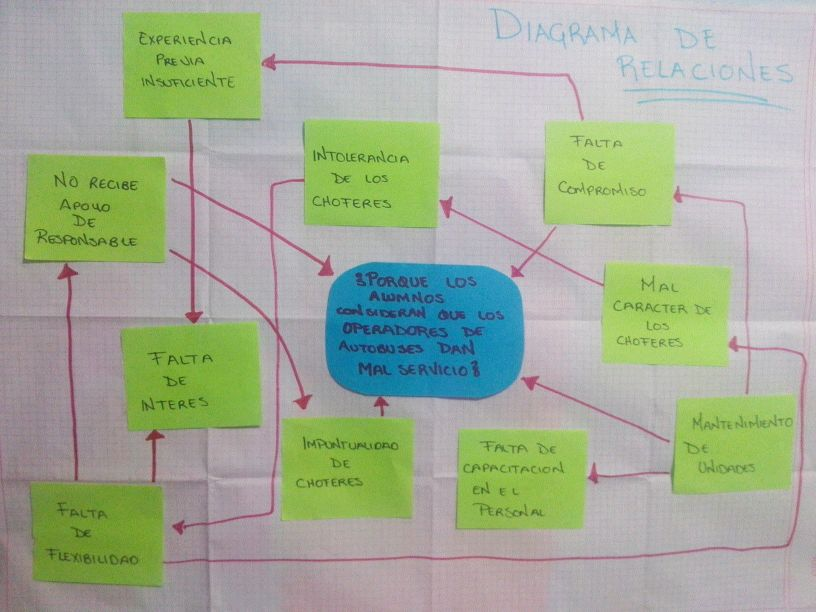 DIAGRAMA DE
RELACIONES
EXPERIENCIA
PREVIA
INSUFICIENTE
INTOLERANCIA
DE LOS
CHOFERES
FALTA
DE
COMPROMISO
NO RECIBE
APOYO
DE
RESPONSABLE
¿PORQUE LOS
ALUMNOS
CONSIDERAN QUE LOS
OPERADORES DE
AUTOBUSES DAN
MAL SERVICIO?
MAL
CARACTER DE
LOS
CHOFERES
FALTA
DE
INTERES
IMPUNTUALIDAD
DE
CHOFERES
FALTA DE
CAPACITACION
EN EL
PERSONAL
MANTENIMIENTO
DE
UNIDADES
FALTA
DE
FLEXIBILIDAD